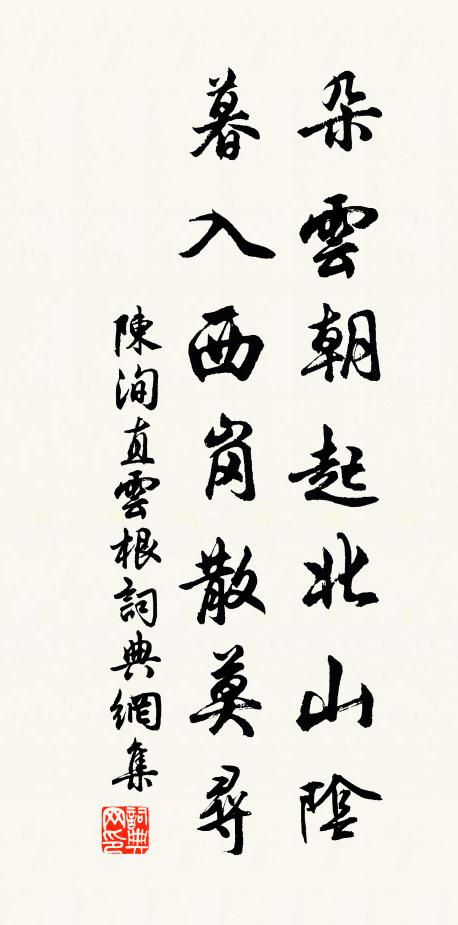 朵雲朝起北山陰
暮入西崗散莫尋
陳洵直雲根詞典網集
詞典
网印